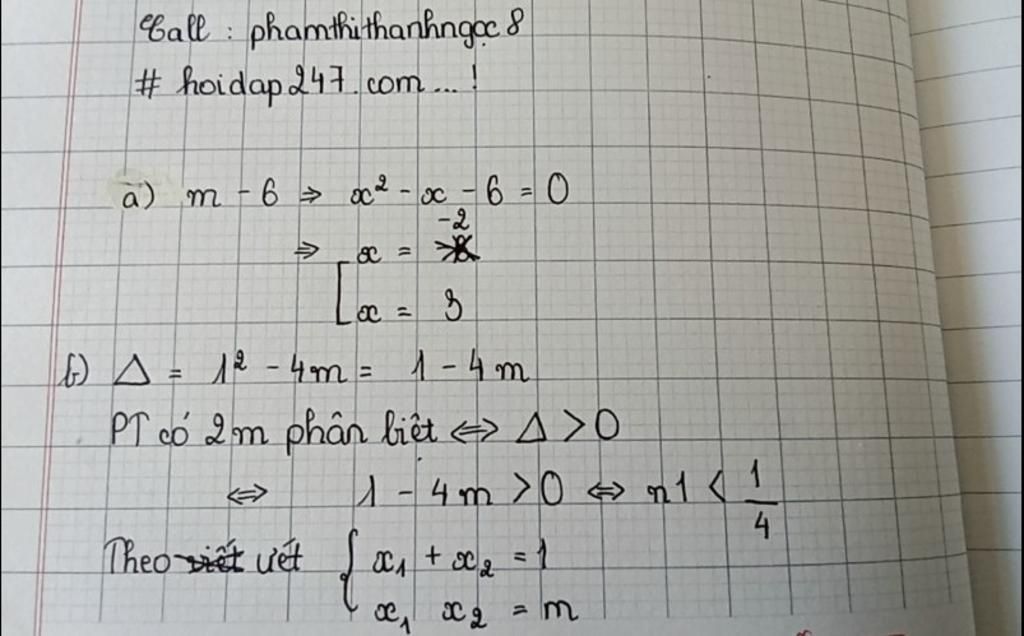 Call : phamthithanhngọc8
# hoidap247.com...!
a) m - 6 ⇒ x² - x - 6 = 0
-2
⇒ [ x =
x = 3
b) Δ = 1² - 4m = 1 - 4m
PT có 2m phân biệt ⇔ Δ > 0
⇔ 1 - 4m > 0 ⇔ m < 1/4
Theo viết vét { x₁ + x₂ = 1
x₁ x₂ = m